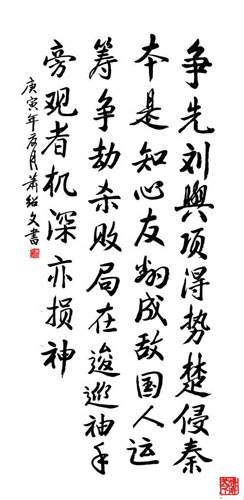 争先刘興项得势楚侵秦
本是知心友翻成敌国人运
筹争劫杀败局在逡巡袖手
旁观者机深亦损神
庚寅年夏月蕭绍文書